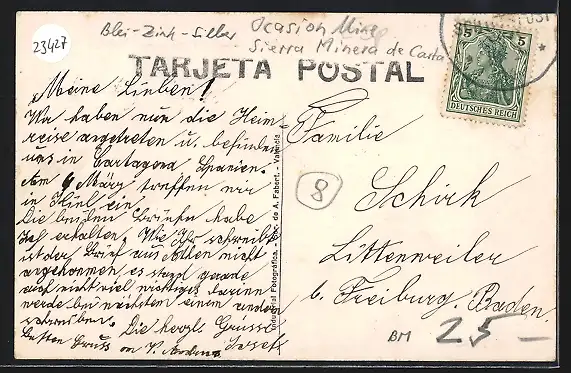 23427
Blei-Zink-Silber
Ocasion Mine
Sierra Minera de Carta
5 5
DEUTSCHES REICH
TARJETA POSTAL
Meine Lieben!
Wir haben nun die Heim-
reise angetreten u. befinden
uns in Cartagena Spanien.
Am 9 März treffen wir
in Kiel ein.
Die beiden Briefe habe
ich erhalten. Wie Ihr schreibt
ist der Brief aus Athen nicht
angekommen, es stand gerade
auch nicht viel wichtiges darinn
werde bei nächsten einem andern
schreiben. Die herzl. Grüsse
besten Gruss an Josef
Industrial Fotográfica. - de A. Fabert. - Valencia
Familie
Schirk
Littenweiler
b. Freiburg. Baden.
8
BM 25-